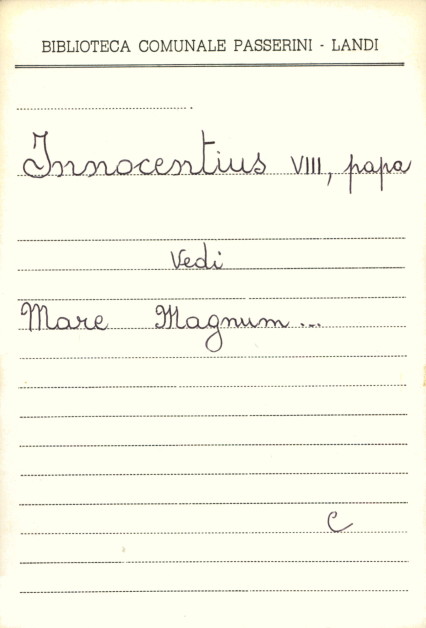 BIBLIOTECA COMUNALE PASSERINI - LANDI
Innocentius VIII, papa
Vedi
Mare Magnum...
C